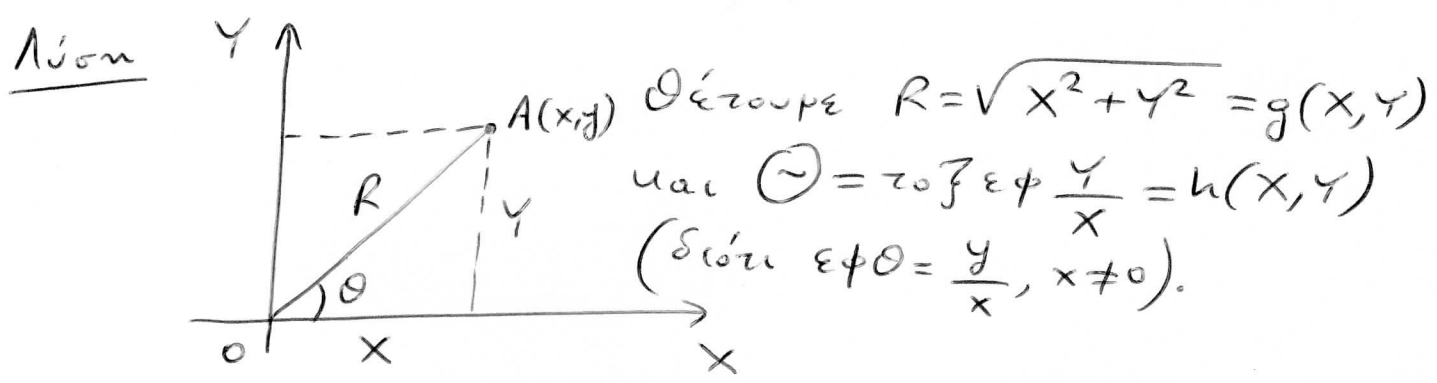 Λύση
Y
A(x,y)
R
Y
θ
O
X
X
Θέτουμε R = √(X² + Y²) = g(X, Y)
και Θ = τοξ εφ Y/X = h(X, Y)
(διότι εφθ = y/x, x ≠ 0).